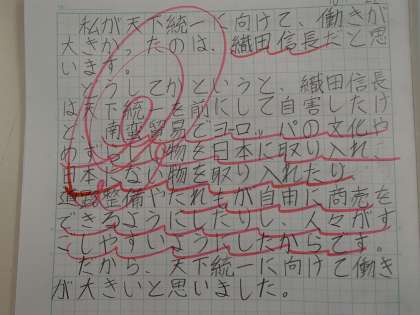 私が天下統一に向けて、働きが
大きかったのは、織田信長だと思
います。
どうしてかというと、織田信長
は天下統一を前にして自害したけ
ど、南蛮貿易でヨーロッパの文化や
めずらしい物を日本に取り入れ、
日本にない物を取り入れたり、
道路整備やだれもが自由に商売を
できるようにしたりし、人々がす
ごしやすいようにしたからです。
だから、天下統一に向けて働き
が大きいと思いました。